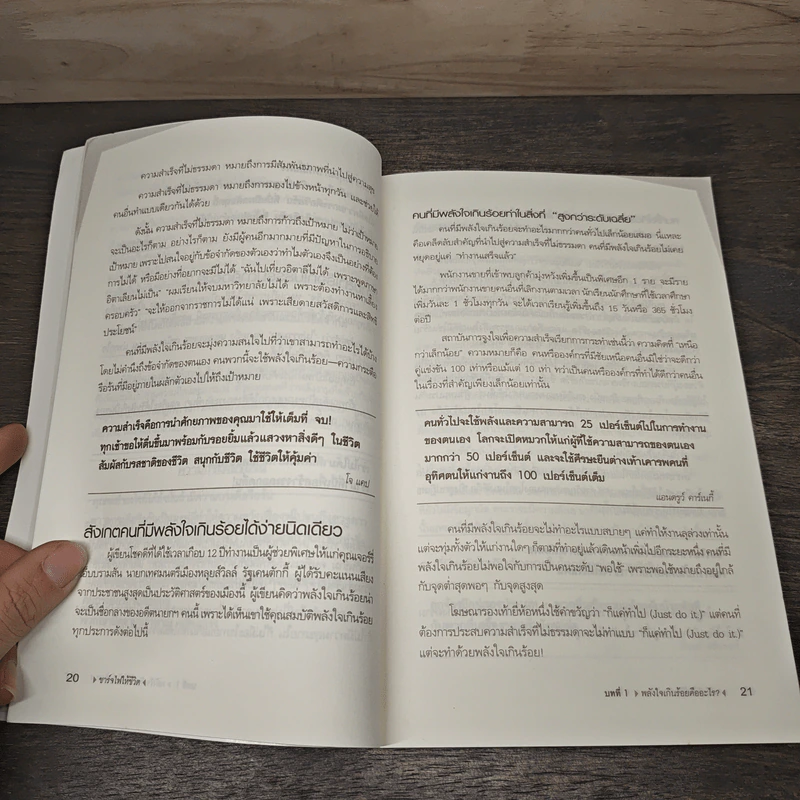 ความสำเร็จที่ไม่ธรรมดา หมายถึงการมีสัมพันธภาพที่นำไปสู่ความสุข
ความสำเร็จที่ไม่ธรรมดา หมายถึงการมองไปข้างหน้าทุกวัน และช่วยให้
คนอื่นทำแบบเดียวกันได้ด้วย
ดังนั้น ความสำเร็จที่ไม่ธรรมดา หมายถึงการก้าวถึงเป้าหมาย ไม่ว่าเป้าหมาย
จะเป็นอะไรก็ตาม อย่างไรก็ตาม ยังมีผู้คนอีกมากมายที่มีปัญหาในการ
เป้าหมาย เพราะไปสนใจอยู่กับข้อจำกัดของตัวเองว่าทำไมตัวเองจึงเป็นอย่างที่ต้อง
การไม่ได้ หรือมีอย่างที่อยากจะมีไม่ได้ "ฉันไปเที่ยวอิตาลีไม่ได้ เพราะพูดภาษา
อิตาเลียนไม่เป็น" "ผมเรียนให้จบมหาวิทยาลัยไม่ได้ เพราะต้องทำงานหาเลี้ยง
ครอบครัว" "จะให้ออกจากราชการไม่ได้แน่ เพราะเสียดายสวัสดิการและสิทธิ
ประโยชน์"
คนที่มีพลังใจเกินร้อยจะมุ่งความสนใจไปที่ว่าเขาสามารถทำอะไรได้บ้าง
โดยไม่คำนึงถึงข้อจำกัดของตนเอง คนพวกนี้จะใช้พลังใจเกินร้อย—ความกระตือ
รือร้นที่มีอยู่ภายในผลักตัวเองไปให้ถึงเป้าหมาย
ความสำเร็จคือการนำศักยภาพของคุณมาใช้ให้เต็มที่ จบ!
ทุกเช้าขอให้ตื่นขึ้นมาพร้อมกับรอยยิ้มแล้วแสวงหาสิ่งดีๆ ในชีวิต
สัมผัสกับรสชาติของชีวิต สนุกกับชีวิต ใช้ชีวิตให้คุ้มค่า
โจ แคป
สังเกตคนที่มีพลังใจเกินร้อยได้ง่ายนิดเดียว
ผู้เขียนโชคดีที่ได้ใช้เวลาเกือบ 12 ปีทำงานเป็นผู้ช่วยพิเศษให้แก่คุณเจอร์รี่
อับบรามสัน นายกเทศมนตรีเมืองหลุยส์วิลล์ รัฐเคนตักกี้ ผู้ได้รับคะแนนเสียง
จากประชาชนสูงสุดเป็นประวัติศาสตร์ของเมืองนี้ ผู้เขียนคิดว่าพลังใจเกินร้อยน่า
จะเป็นชื่อกลางของอดีตนายกฯ คนนี้ เพราะได้เห็นเขาใช้คุณสมบัติพลังใจเกินร้อย
ทุกประการดังต่อไปนี้
20 ชาร์จไฟให้ชีวิต
คนที่มีพลังใจเกินร้อยทำในสิ่งที่ "สูงกว่าระดับเฉลี่ย"
คนที่มีพลังใจเกินร้อยจะทำอะไรมากกว่าคนทั่วไปเล็กน้อยเสมอ นี่แหละ
คือเคล็ดลับสำคัญที่นำไปสู่ความสำเร็จที่ไม่ธรรมดา คนที่มีพลังใจเกินร้อยไม่เคย
หยุดอยู่แค่ "ทำงานเสร็จแล้ว"
พนักงานขายที่เข้าพบลูกค้ามุ่งหวังเพิ่มขึ้นเป็นพิเศษอีก 1 ราย จะมีราย
ได้มากกว่าพนักงานขายคนอื่นที่เลิกงานตามเวลา นักเรียนนักศึกษาที่ใช้เวลาศึกษา
เพิ่มวันละ 1 ชั่วโมงทุกวัน จะได้เวลาเรียนรู้เพิ่มขึ้นถึง 15 วันหรือ 365 ชั่วโมง
ต่อปี
สถาบันการจูงใจเพื่อความสำเร็จเรียกการกระทำเช่นนี้ว่า ความคิดที่ "เหนือ
กว่าเล็กน้อย" ความหมายก็คือ คนหรือองค์กรที่มีชัยเหนือคนอื่นมิใช่ว่าจะดีกว่า
คู่แข่งขัน 100 เท่าหรือแม้แต่ 10 เท่า ทว่าเป็นคนหรือองค์กรที่ทำได้ดีกว่าคนอื่น
ในเรื่องที่สำคัญเพียงเล็กน้อยเท่านั้น
คนทั่วไปจะใช้พลังและความสามารถ 25 เปอร์เซ็นต์ไปในการทำงาน
ของตนเอง โลกจะเปิดหมวกให้แก่ผู้ที่ใช้ความสามารถของตนเอง
มากกว่า 50 เปอร์เซ็นต์ และจะใช้ศีรษะยืนต่างเท้าเคารพคนที่
อุทิศตนให้แก่งานถึง 100 เปอร์เซ็นต์เต็ม
แอนดรูว์ คาร์เนกี้
คนที่มีพลังใจเกินร้อยจะไม่ทำอะไรแบบสบายๆ แค่ทำให้งานลุล่วงเท่านั้น
แต่จะทุ่มทั้งตัวให้แก่งานใดๆ ก็ตามที่ทำอยู่แล้วเดินหน้าเพิ่มไปอีกระยะหนึ่ง คนที่มี
พลังใจเกินร้อยไม่พอใจกับการเป็นคนระดับ "พอใช้" เพราะพอใช้หมายถึงอยู่ใกล้
กับจุดต่ำสุดพอๆ กับจุดสูงสุด
โฆษณารองเท้ายี่ห้อหนึ่งใช้คำขวัญว่า "ก็แค่ทำไป (Just do it.)" แต่คนที่
ต้องการประสบความสำเร็จที่ไม่ธรรมดาจะไม่ทำแบบ "ก็แค่ทำไป (Just do it.)"
แต่จะทำด้วยพลังใจเกินร้อย!
บทที่ 1 พลังใจเกินร้อยคืออะไร? 21